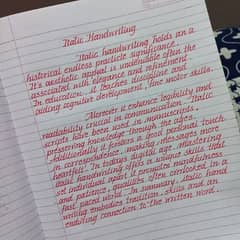 Italic Handwriting
Italic handwriting holds an a
historical endless practicle significance.
It's aesthetic appeal is undeniable often the
associated with elegance and refinement
In education, it teaches discipline and
aiding cognitive development, fine motor skills.
Moreover it enhance legibility and
readability crucial in communication. Italic
scripts have been used in manuscripts,
preserving knowledge through the ages.
Additionally it fosters a good personal touch
in correspondence, making messages more
heartfelt. In todays digital age, mastering
italic handwriting offers a unique skills that
set individual apart it promote mindfulness
and patience, qualities often overlooked in a
fast paced world. In summary, italic hand
writing embodies tradition, skills and an
enduring connection to the written word.